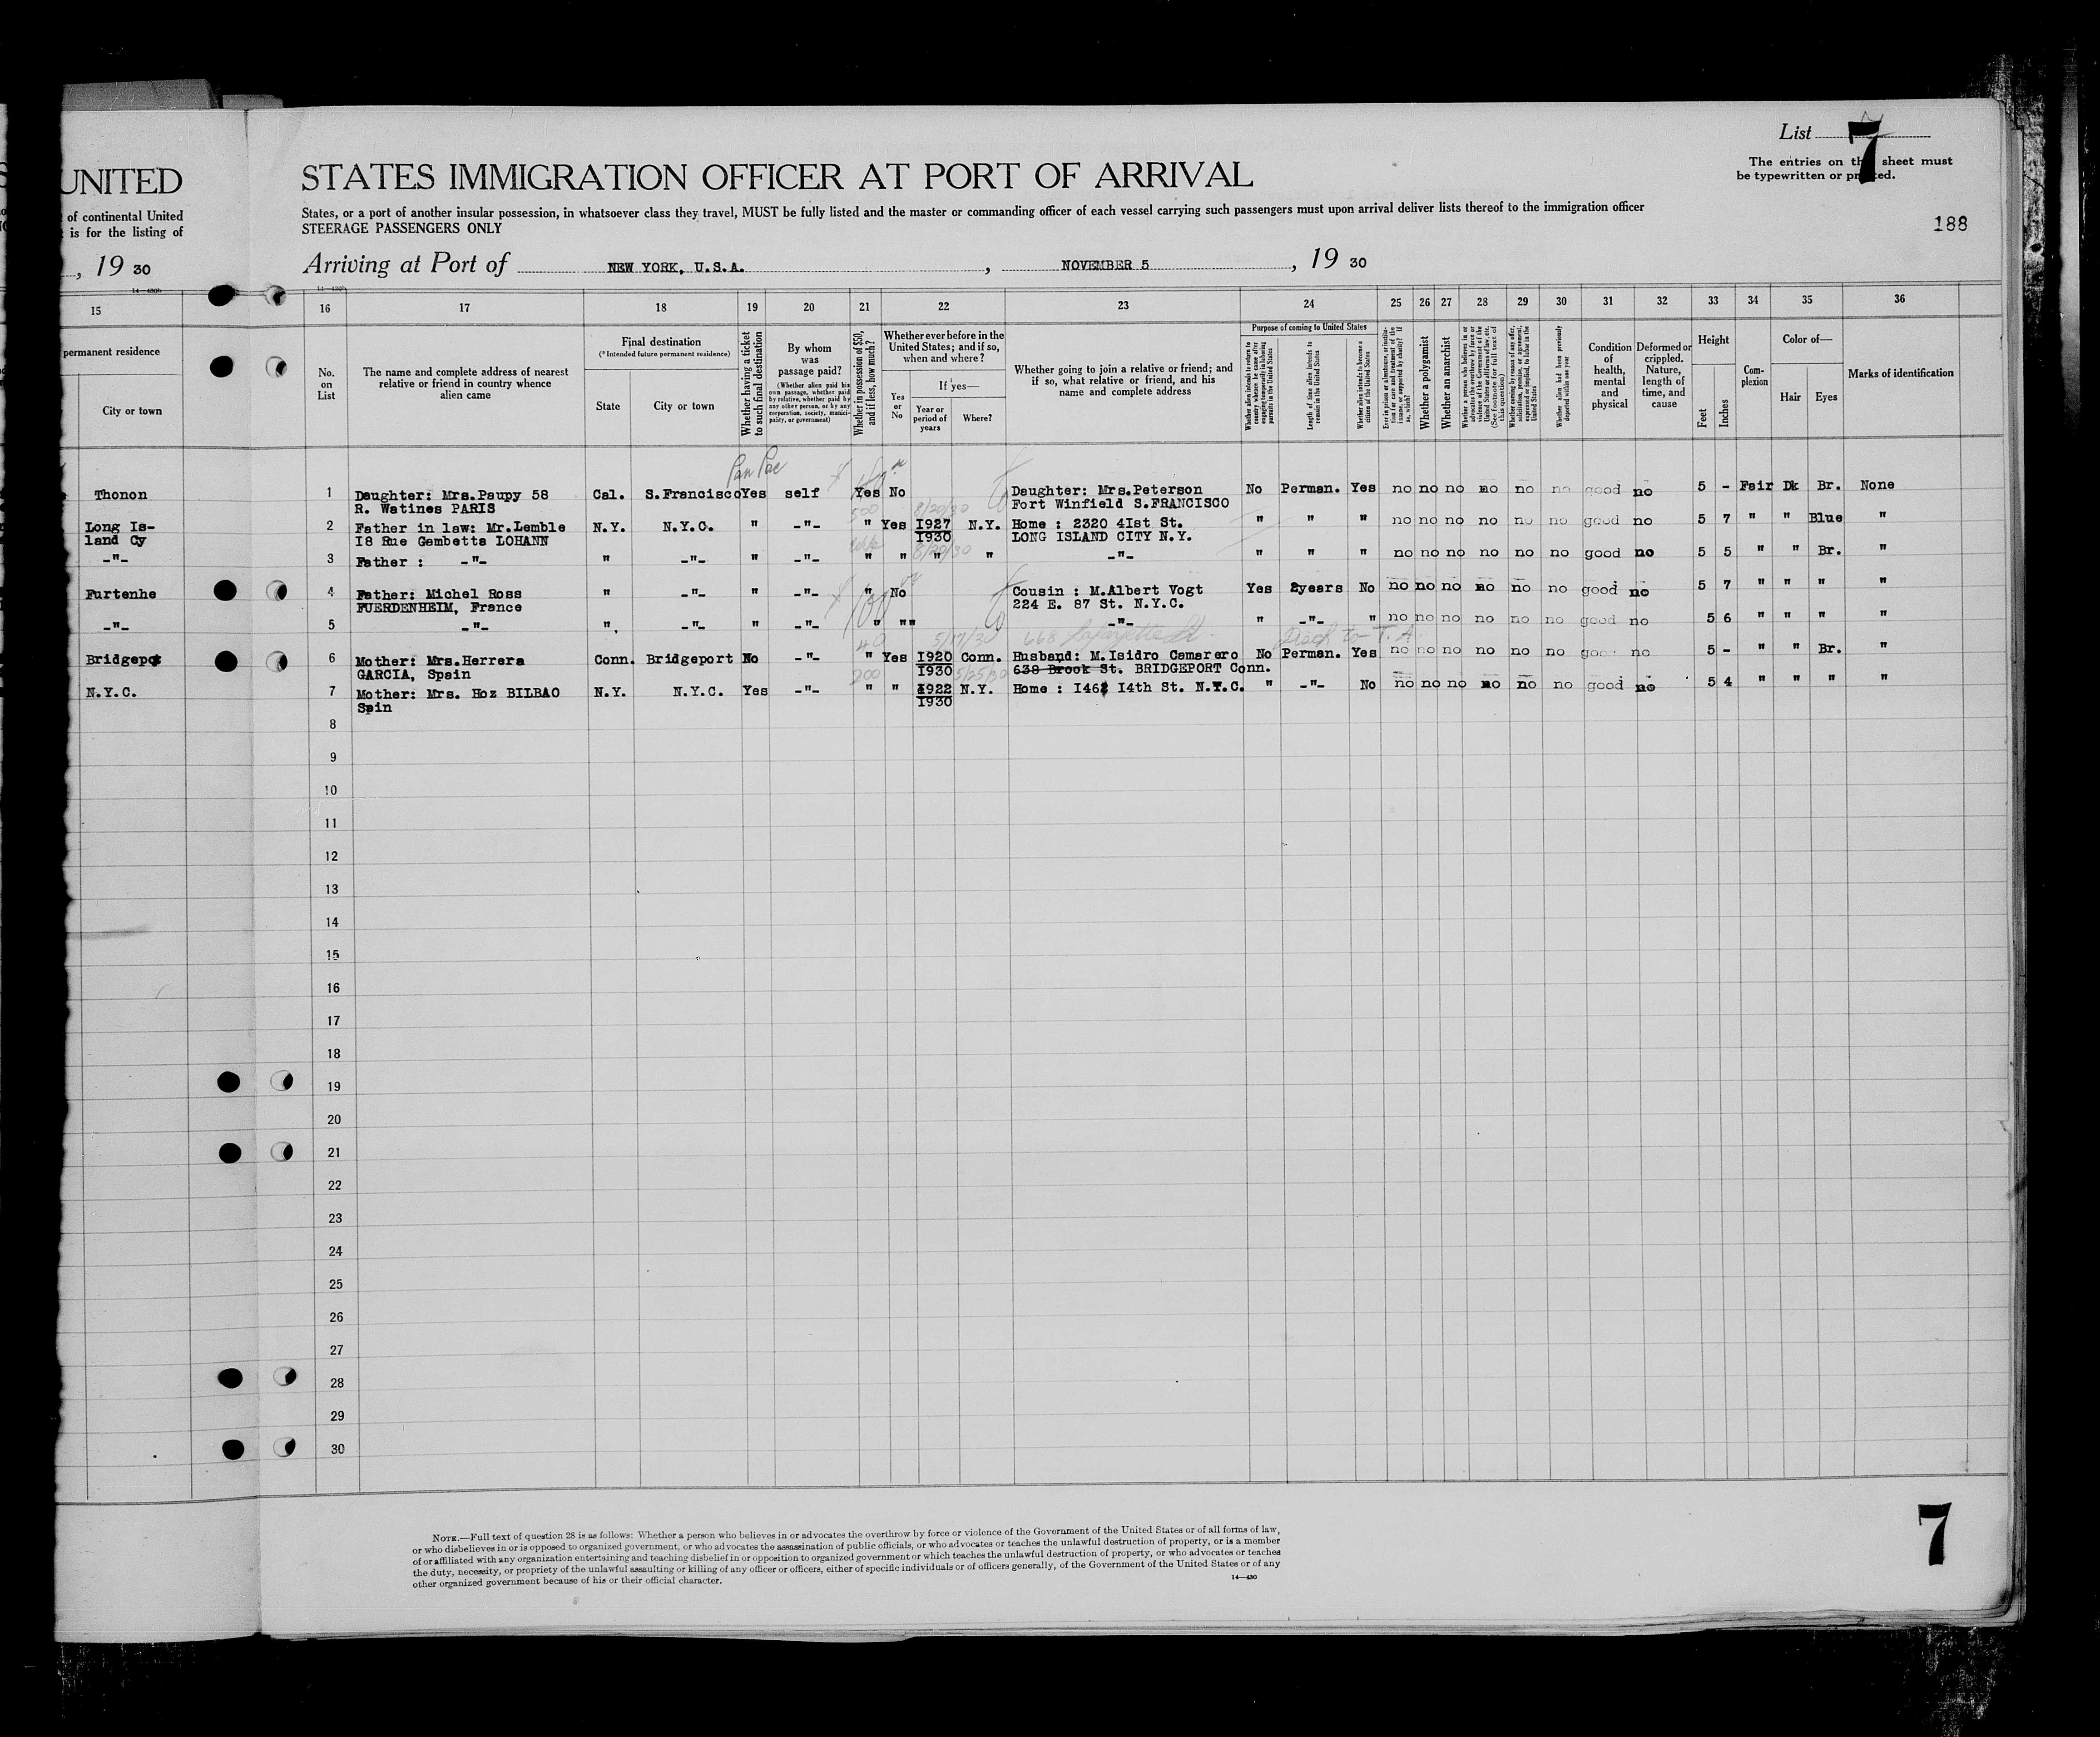 List 7
The entries on this sheet must
be typewritten or printed.
UNITED STATES IMMIGRATION OFFICER AT PORT OF ARRIVAL
of continental United States, or a port of another insular possession, in whatsoever class they travel, MUST be fully listed and the master or commanding officer of each vessel carrying such passengers must upon arrival deliver lists thereof to the immigration officer
is for the listing of STEERAGE PASSENGERS ONLY
188
, 19 30 Arriving at Port of NEW YORK, U.S.A. , NOVEMBER 5 , 19 30
15 16 17 18 19 20 21 22 23 24 25 26 27 28 29 30 31 32 33 34 35 36
permanent residence
City or town
No. on List
The name and complete address of nearest
relative or friend in country whence
alien came
Final destination
(*Intended future permanent residence)
State City or town
Whether having a ticket
to such final destination
By whom
was
passage paid?
(Whether alien paid his
own passage, whether paid
by relative, whether paid by
any other person, or by any
corporation, society, munici-
pality, or government)
Whether in possession of $50,
and if less, how much?
Whether ever before in the
United States; and if so,
when and where?
If yes—
Yes or No
Year or
period of
years
Where?
Whether going to join a relative or friend; and
if so, what relative or friend, and his
name and complete address
Purpose of coming to United States
Length of time alien intends to
remain in the United States
Whether alien intends to become a
citizen of the United States
Whether a polygamist
Whether an anarchist
Whether alien had been previously
deported within one year
Condition
of
health,
mental
and
physical
Deformed or
crippled.
Nature,
length of
time, and
cause
Height
Feet Inches
Com-
plexion
Color of—
Hair Eyes
Marks of identification
Pan Pac
Thonon 1 Daughter: Mrs.Paupy 58 Cal. S.Francisco Yes self Yes No Daughter: Mrs.Peterson No Perman. Yes no no no no no no good no 5 - Fair Dk Br. None
R. Watines PARIS Fort Winfield S.FRANCISCO
500 8/20/30
Long Is- 2 Father in law: Mr.Lemble N.Y. N.Y.C. " -"- " Yes I927 N.Y. Home : 2320 4Ist St. " " " no no no no no no good no 5 7 " " Blue "
land Cy I8 Rue Gambetta LOHANN I930 LONG ISLAND CITY N.Y.
8/20/30
-"- 3 Father : -"- " -"- " -"- " " " " -"- " " " no no no no no no good no 5 5 " " Br. "
Furtenhe 4 Father: Michel Ross " -"- " -"- " No Cousin : M.Albert Vogt Yes 2years No no no no no no no good no 5 7 " " " "
FUERDENHEIM, France 224 E. 87 St. N.Y.C.
-"- 5 -"- ", -"- " -"- " "" -"- " -"- " no no no no no no good no 5 6 " " " "
40 5/17/30 668 Lafayette St.
Bridgepot 6 Mother: Mrs.Herrera Conn. Bridgeport No -"- " Yes I920 Conn. Husband: M.Isidro Camarero No Perman. Yes no no no no no no good no 5 - " " Br. "
GARCIA, Spain I930 638 Brook St. BRIDGEPORT Conn.
200 5/25/30
N.Y.C. 7 Mother: Mrs. Hoz BILBAO N.Y. N.Y.C. Yes -"- " " I922 N.Y. Home : I462 I4th St. N.Y.C. " -"- No no no no no no no good no 5 4 " " " "
Spin I930
8
9
10
11
12
13
14
15
16
17
18
19
20
21
22
23
24
25
26
27
28
29
30
NOTE.—Full text of question 28 is as follows: Whether a person who believes in or advocates the overthrow by force or violence of the Government of the United States or of all forms of law,
or who disbelieves in or is opposed to organized government, or who advocates the assassination of public officials, or who advocates or teaches the unlawful destruction of property, or is a member
of or affiliated with any organization entertaining and teaching disbelief in or opposition to organized government or which teaches the unlawful destruction of property, or who advocates or teaches
the duty, necessity, or propriety of the unlawful assaulting or killing of any officer or officers, either of specific individuals or of officers generally, of the Government of the United States or of any
other organized government because of his or their official character.
14—430
7